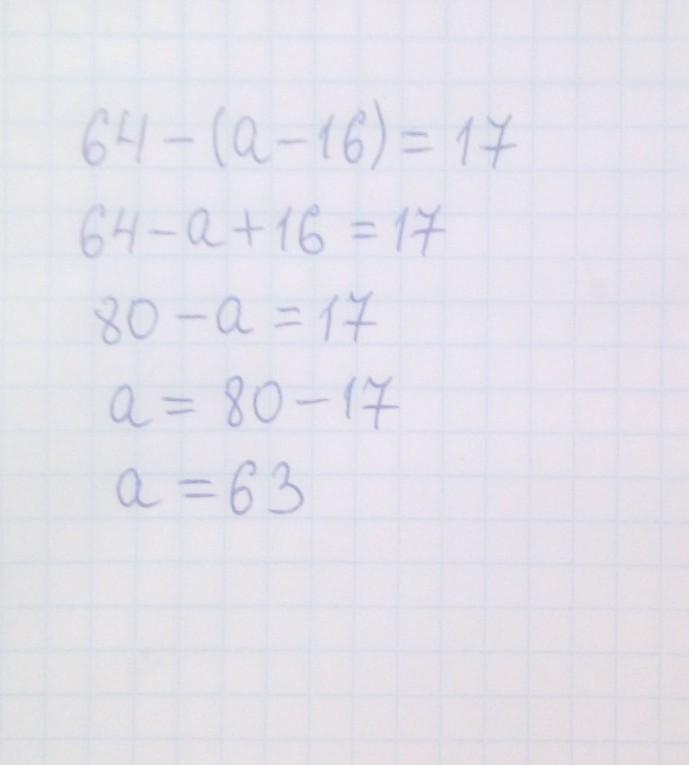 64-(a-16)=17
64-a+16=17
80-a=17
a=80-17
a=63